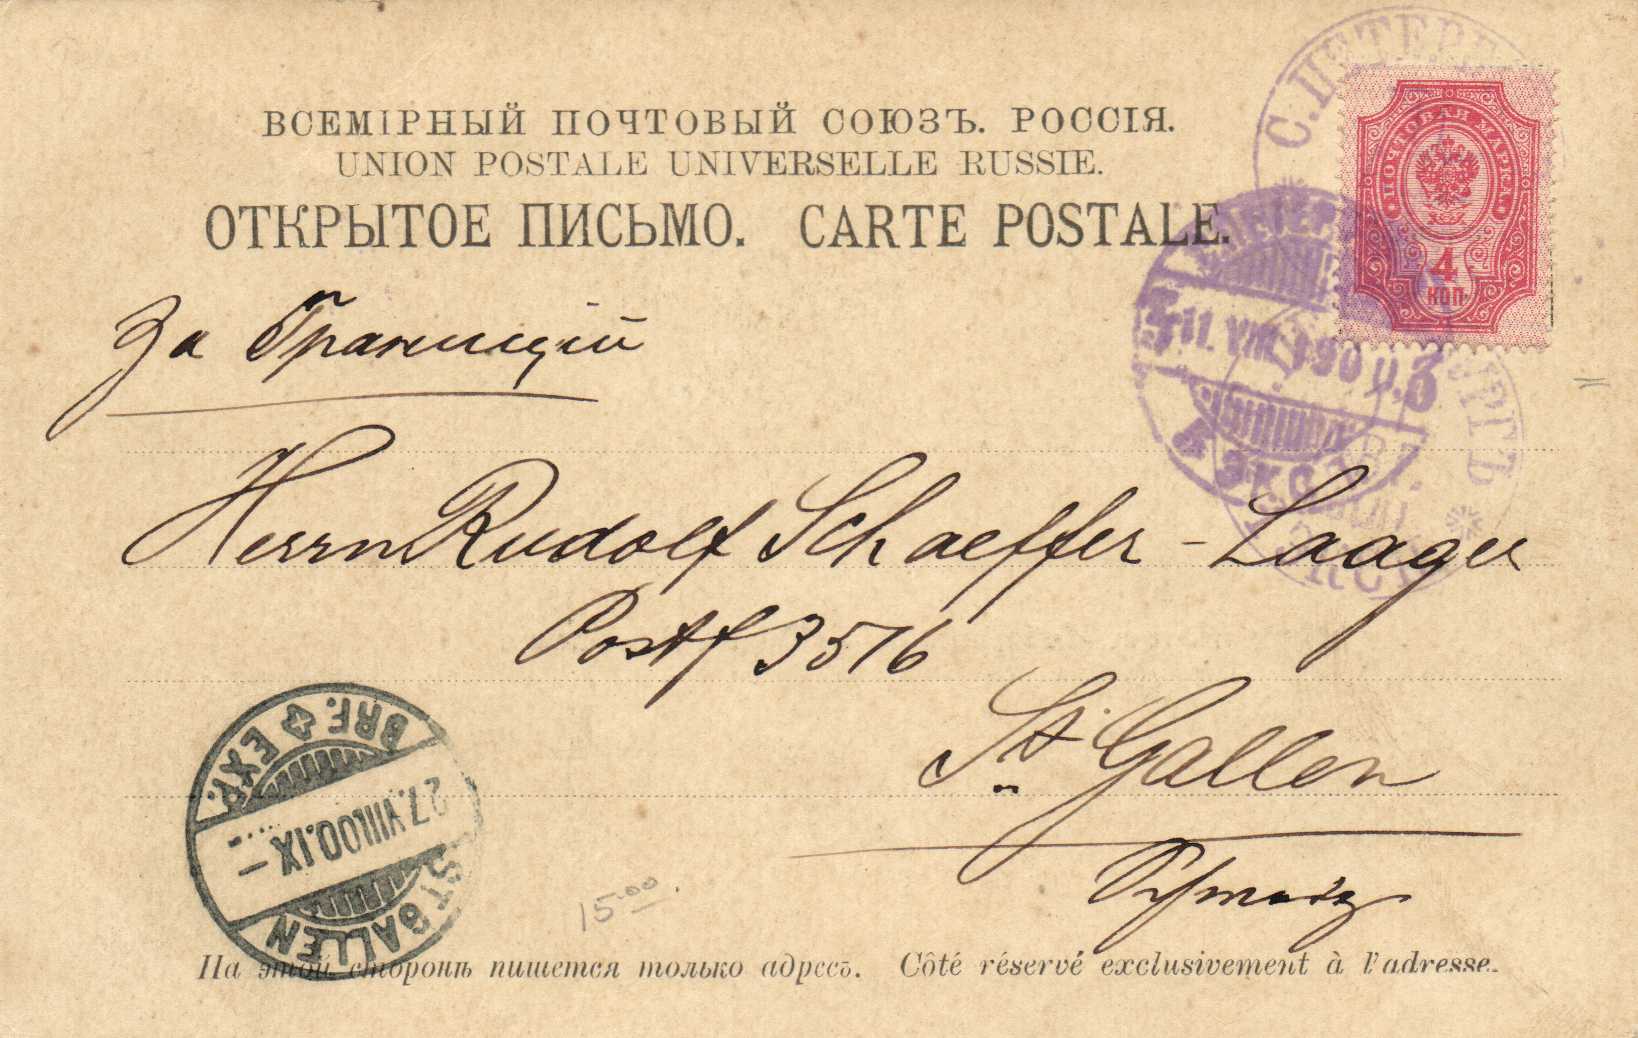 ВСЕМІРНЫЙ ПОЧТОВЫЙ СОЮЗЪ. РОССІЯ.
UNION POSTALE UNIVERSELLE RUSSIE.
ОТКРЫТОЕ ПИСЬМО. CARTE POSTALE.
ПОЧТОВАЯ МАРКА
4
КОП.
За Границій
11. VIII
Herrn Rudolf Schaeffer-Laager
Postf 3516
St. Gallen
Schweiz
BRF. EXP.
27.VIII.00.IX–
ST. GALLEN
15.00
На этой сторонѣ пишется только адресъ. Côté réservé exclusivement à l'adresse.